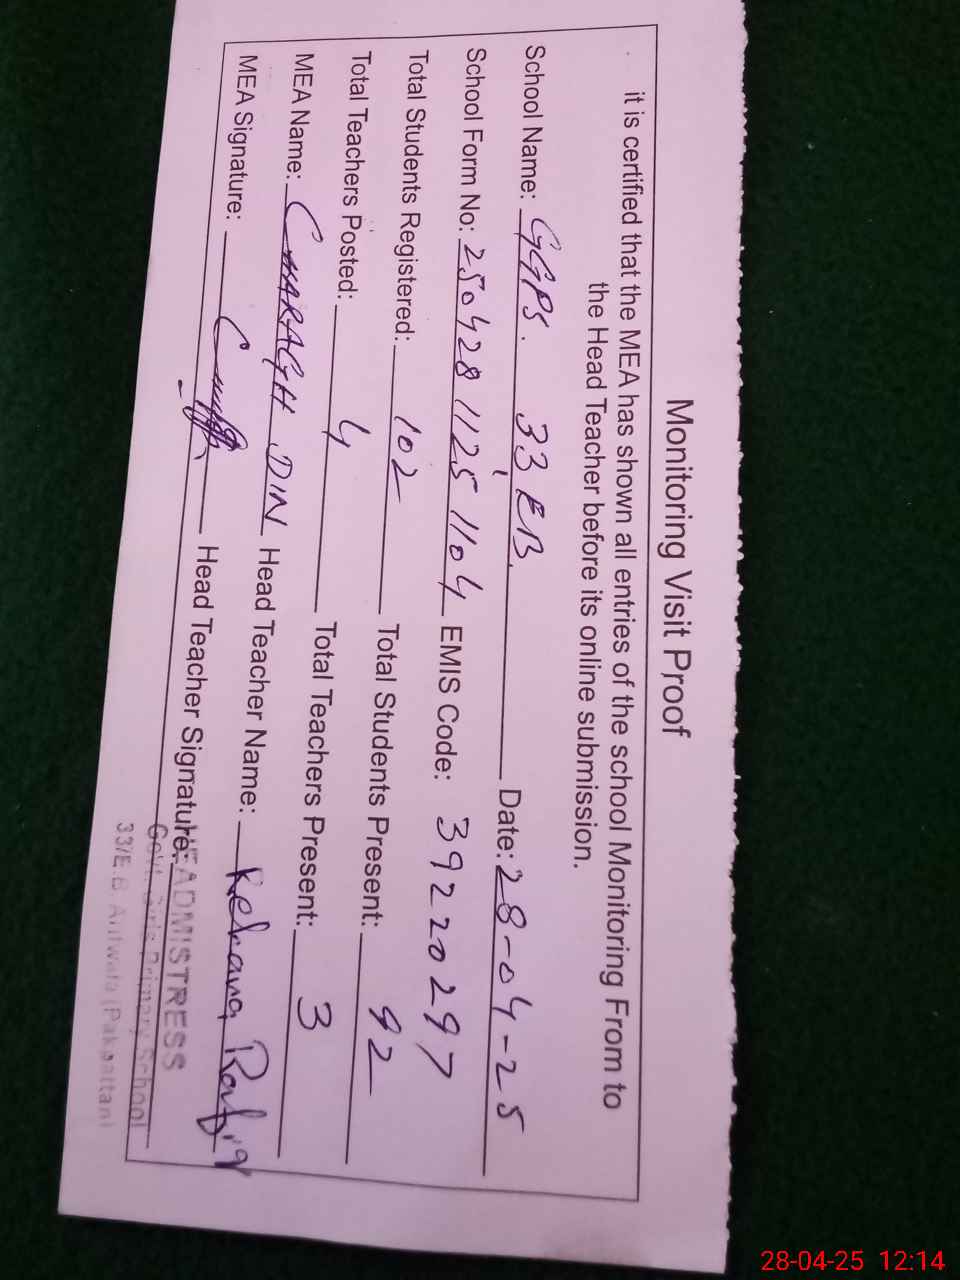 Monitoring Visit Proof
it is certified that the MEA has shown all entries of the school Monitoring From to
the Head Teacher before its online submission.
School Name: GGPS. 33 EB. Date: 28-04-25
School Form No: 250428 1125 1104 EMIS Code: 39220297
Total Students Registered: 102 Total Students Present: 92
Total Teachers Posted: 4 Total Teachers Present: 3
MEA Name: CHARAGH DIN Head Teacher Name:
MEA Signature: Head Teacher Signature:
HEADMISTRESS
Govt. Girls Primary School
33/E.B. (Pakpattan)
28-04-25 12:14